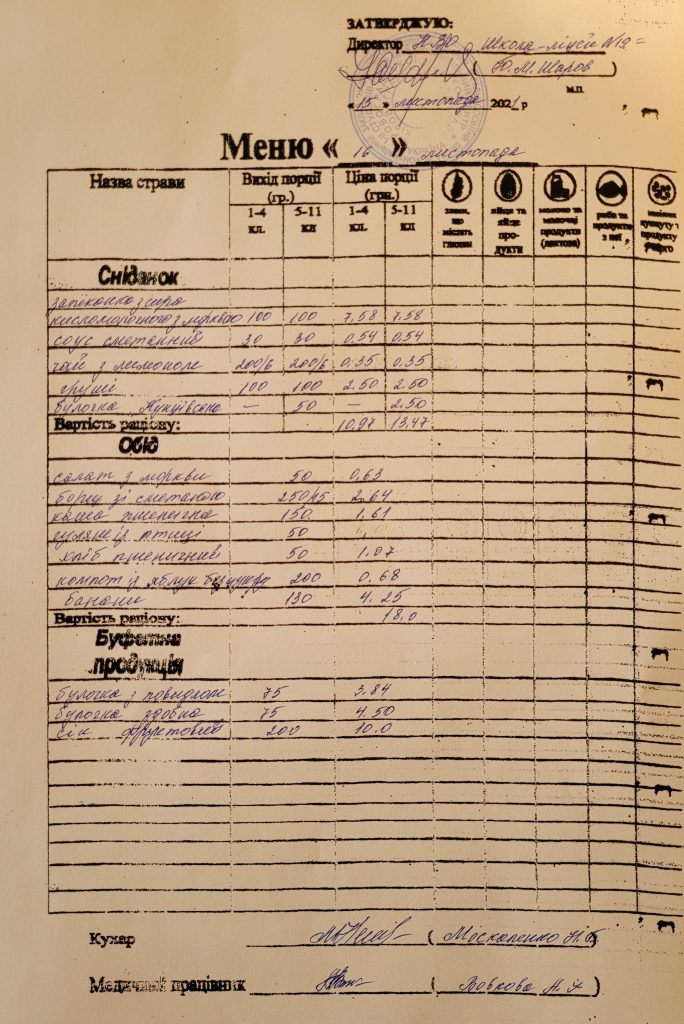 ЗАТВЕРДЖУЮ:
Директор Н.В.О Школа-ліцей N19
( Ю.М. Шаров )
м.п.
« 15 » листопада 2021 р
Меню « 16 » листопада
Назва страви Вихід порції (гр.) Ціна порції (грн.)
1-4 кл. 5-11 кл 1-4 кл. 5-11 кл
злаки, що містять глютен
яйця та яйце продукти
молоко та молочні продукти (лактоза)
риба та продукти з неї
Сніданок
запеканка з сира
кисломолочного з морквою 100 100 7,58 7,58
соус сметанний 30 30 0,54 0,54
чай з лимоном 200/6 200/6 0.35 0.35
груші 100 100 2.50 2.50
булочка — 50 — 2.50
Вартість раціону: 10,97 13,47
Обід
салат з моркви 50 0,63
борщ зі сметаною 250/15 2.64
каша пшенична 150 1.61
гуляш із птиці 50
хліб пшеничний 50 1.07
компот із яблук без цукру 200 0.68
банани 130 4.25
Вартість раціону: 18.0
Буфетна
продукція
булочка з повидлом 75 3.84
булочка здобна 75 4.50
сік фруктовий 200 10.0
Кухар ( Москаленко Н.Б. )
Медичний працівник ( Вовкова )